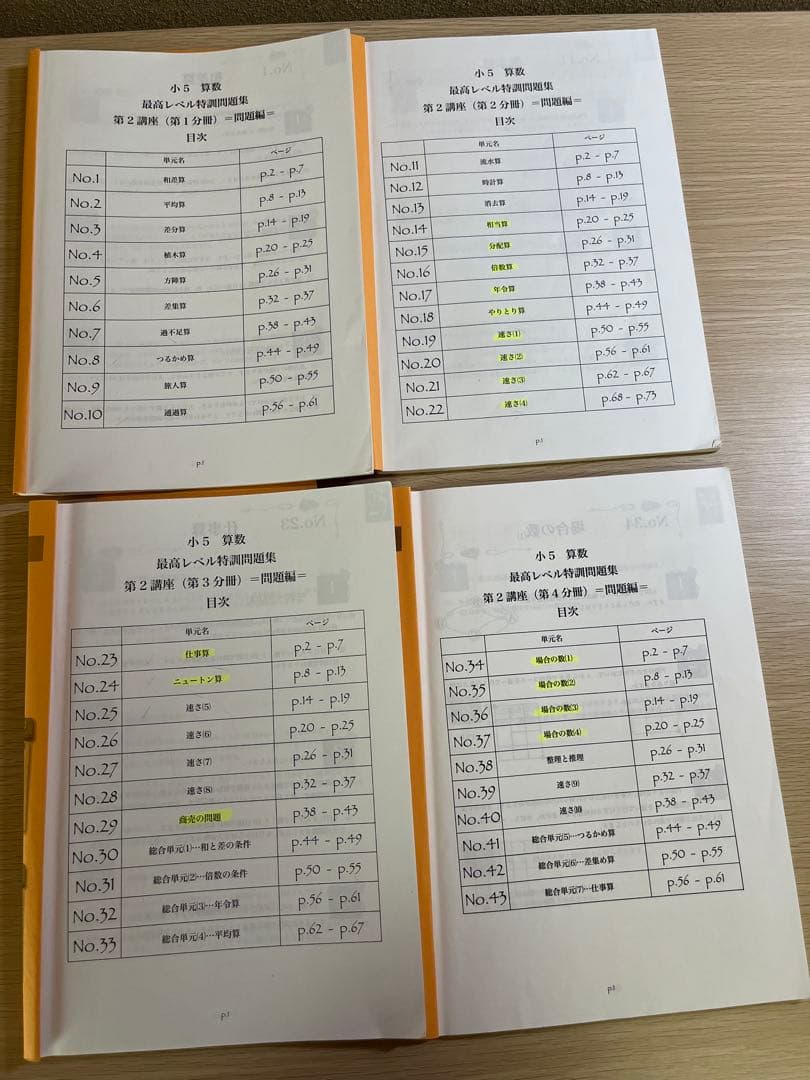 小5 算数
最高レベル特訓問題集
第2講座（第1分冊）＝問題編＝
目次
単元名 ページ
No.1 和差算 p.2 - p.7
No.2 平均算 p.8 - p.13
No.3 差分算 p.14 - p.19
No.4 植木算 p.20 - p.25
No.5 方陣算 p.26 - p.31
No.6 差集算 p.32 - p.37
No.7 過不足算 p.38 - p.43
No.8 つるかめ算 p.44 - p.49
No.9 旅人算 p.50 - p.55
No.10 通過算 p.56 - p.61
p.1
小5 算数
最高レベル特訓問題集
第2講座（第2分冊）＝問題編＝
目次
単元名 ページ
No.11 流水算 p.2 - p.7
No.12 時計算 p.8 - p.13
No.13 消去算 p.14 - p.19
No.14 相当算 p.20 - p.25
No.15 分配算 p.26 - p.31
No.16 倍数算 p.32 - p.37
No.17 年令算 p.38 - p.43
No.18 やりとり算 p.44 - p.49
No.19 速さ⑴ p.50 - p.55
No.20 速さ⑵ p.56 - p.61
No.21 速さ⑶ p.62 - p.67
No.22 速さ⑷ p.68 - p.73
p.1
No.23 仕事算
小5 算数
最高レベル特訓問題集
第2講座（第3分冊）＝問題編＝
目次
単元名 ページ
No.23 仕事算 p.2 - p.7
No.24 ニュートン算 p.8 - p.13
No.25 速さ⑸ p.14 - p.19
No.26 速さ⑹ p.20 - p.25
No.27 速さ⑺ p.26 - p.31
No.28 速さ⑻ p.32 - p.37
No.29 商売の問題 p.38 - p.43
No.30 総合単元⑴…和と差の条件 p.44 - p.49
No.31 総合単元⑵…倍数の条件 p.50 - p.55
No.32 総合単元⑶…年令算 p.56 - p.61
No.33 総合単元⑷…平均算 p.62 - p.67
p.1
No.34 場合の数
小5 算数
最高レベル特訓問題集
第2講座（第4分冊）＝問題編＝
目次
単元名 ページ
No.34 場合の数⑴ p.2 - p.7
No.35 場合の数⑵ p.8 - p.13
No.36 場合の数⑶ p.14 - p.19
No.37 場合の数⑷ p.20 - p.25
No.38 整理と推理 p.26 - p.31
No.39 速さ⑼ p.32 - p.37
No.40 速さ⑽ p.38 - p.43
No.41 総合単元⑸…つるかめ算 p.44 - p.49
No.42 総合単元⑹…差集め算 p.50 - p.55
No.43 総合単元⑺…仕事算 p.56 - p.61